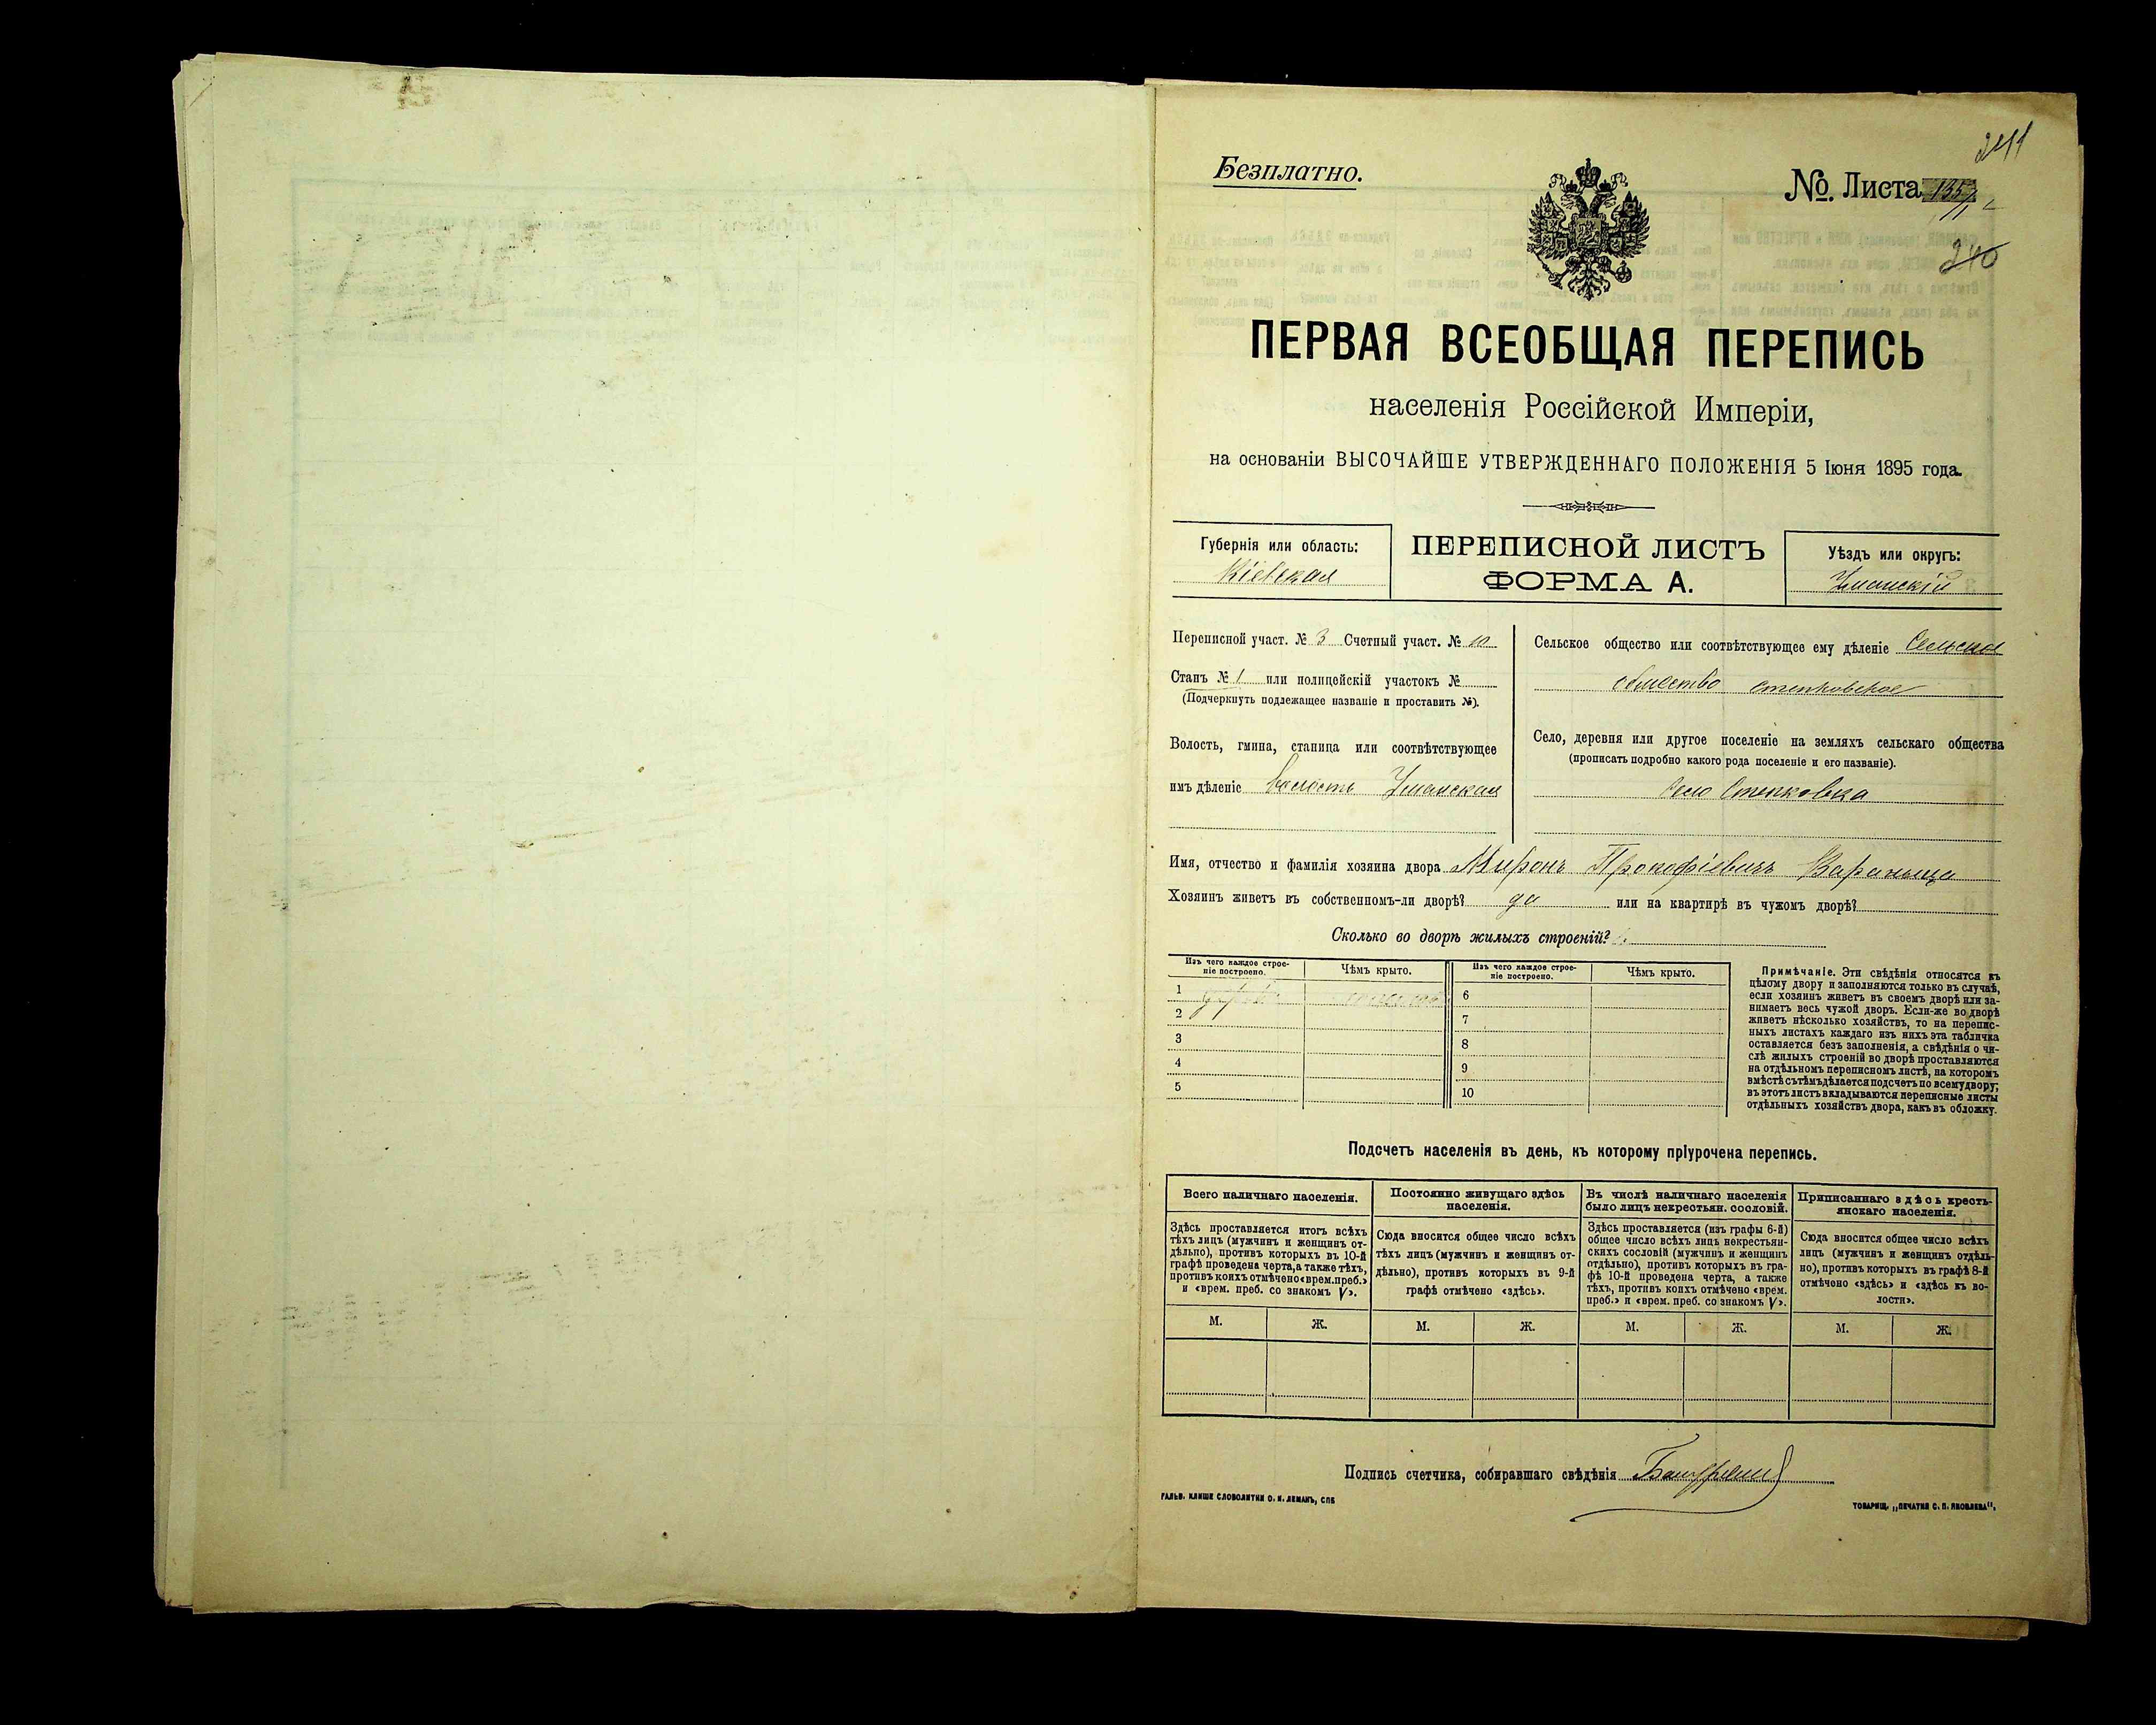 241
Безплатно.
№. Листа 135
240
ПЕРВАЯ ВСЕОБЩАЯ ПЕРЕПИСЬ
населенія Россійской Имперіи,
на основаніи ВЫСОЧАЙШЕ УТВЕРЖДЕННАГО ПОЛОЖЕНІЯ 5 Іюня 1895 года.
Губернія или область:
Кіевская
ПЕРЕПИСНОЙ ЛИСТЪ
ФОРМА А.
Уѣздъ или округъ:
Уманскій
Переписной участ. № 3 Счетный участ. № 10
Станъ № 1 или полицейскій участокъ №
(Подчеркнуть подлежащее названіе и проставить №).
Волость, гмина, станица или соотвѣтствующее
имъ дѣленіе волость Уманская
Сельское общество или соотвѣтствующее ему дѣленіе Сельское
общество степковское
Село, деревня или другое поселеніе на земляхъ сельскаго общества
(прописать подробно какого рода поселеніе и его названіе).
Село Степковка
Имя, отчество и фамилія хозяина двора Миронъ Прокофіевичъ
Хозяинъ живетъ въ собственномъ-ли дворѣ? да или на квартирѣ въ чужомъ дворѣ?
Сколько во дворѣ жилыхъ строеній?
Изъ чего каждое строе-
ніе построено.
Чѣмъ крыто.
Изъ чего каждое строе-
ніе построено.
Чѣмъ крыто.
1
2
3
4
5
6
7
8
9
10
Примѣчаніе. Эти свѣдѣнія относятся къ
цѣлому двору и заполняются только въ случаѣ,
если хозяинъ живетъ въ своемъ дворѣ или за-
нимаетъ весь чужой дворъ. Если-же во дворѣ
живетъ нѣсколько хозяйствъ, то на перепис-
ныхъ листахъ каждаго изъ нихъ эта табличка
оставляется безъ заполненія, а свѣдѣнія о чи-
слѣ жилыхъ строеній во дворѣ проставляются
на отдѣльномъ переписномъ листѣ, на которомъ
вмѣстѣ съ тѣмъ дѣлается подсчетъ по всему двору;
въ этотъ листъ вкладываются переписные листы
отдѣльныхъ хозяйствъ двора, какъ въ обложку.
Подсчетъ населенія въ день, къ которому пріурочена перепись.
Всего наличнаго населенія.
Здѣсь проставляется итогъ всѣхъ
тѣхъ лицъ (мужчинъ и женщинъ от-
дѣльно), противъ которыхъ въ 10-й
графѣ проведена черта, а также тѣхъ,
противъ коихъ отмѣчено «врем. преб.»
и «врем. преб. со знакомъ V».
Постоянно живущаго здѣсь
населенія.
Сюда вносится общее число всѣхъ
тѣхъ лицъ (мужчинъ и женщинъ от-
дѣльно), противъ которыхъ въ 9-й
графѣ отмѣчено «здѣсь».
Въ числѣ наличнаго населенія
было лицъ некрестьян. сословій.
Здѣсь проставляется (изъ графы 6-й)
общее число всѣхъ лицъ некрестьян-
скихъ сословій (мужчинъ и женщинъ
отдѣльно), противъ которыхъ въ гра-
фѣ 10-й проведена черта, а также
тѣхъ, противъ коихъ отмѣчено «врем.
преб.» и «врем. преб. со знакомъ V».
Приписаннаго здѣсь кресть-
янскаго населенія.
Сюда вносится общее число всѣхъ
лицъ (мужчинъ и женщинъ отдѣль-
но), противъ которыхъ въ графѣ 8-й
отмѣчено «здѣсь» и «здѣсь къ во-
лости».
М. Ж. М. Ж. М. Ж. М. Ж.
Подпись счетчика, собиравшаго свѣдѣнія
ГАЛЬВ. КЛИШЕ СЛОВОЛИТНИ О. И. ЛЕМАНЪ, СПБ
ТОВАРИЩ. „ПЕЧАТНЯ С. П. ЯКОВЛЕВА“.